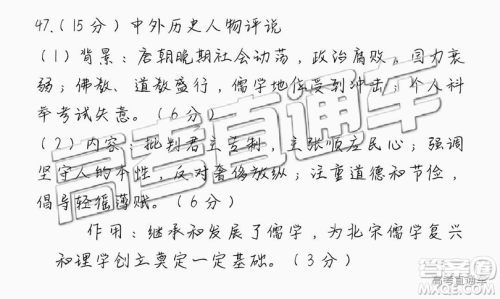 47.(15分)中外历史人物评说
(1)背景：唐朝晚期社会动荡，政治腐败，国力衰
弱；佛教、道教盛行，儒学地位受到冲击；个人科
举考试失意。(6分)
(2)内容：批判君主专制，主张顺应民心；强调
坚守人的本性，反对奢侈放纵；注重道德和节俭，
倡导轻徭薄赋。(6分)
作用：继承和发展了儒学，为北宋儒学复兴
和理学创立奠定一定基础。(3分)
高考直通车
高考直通车